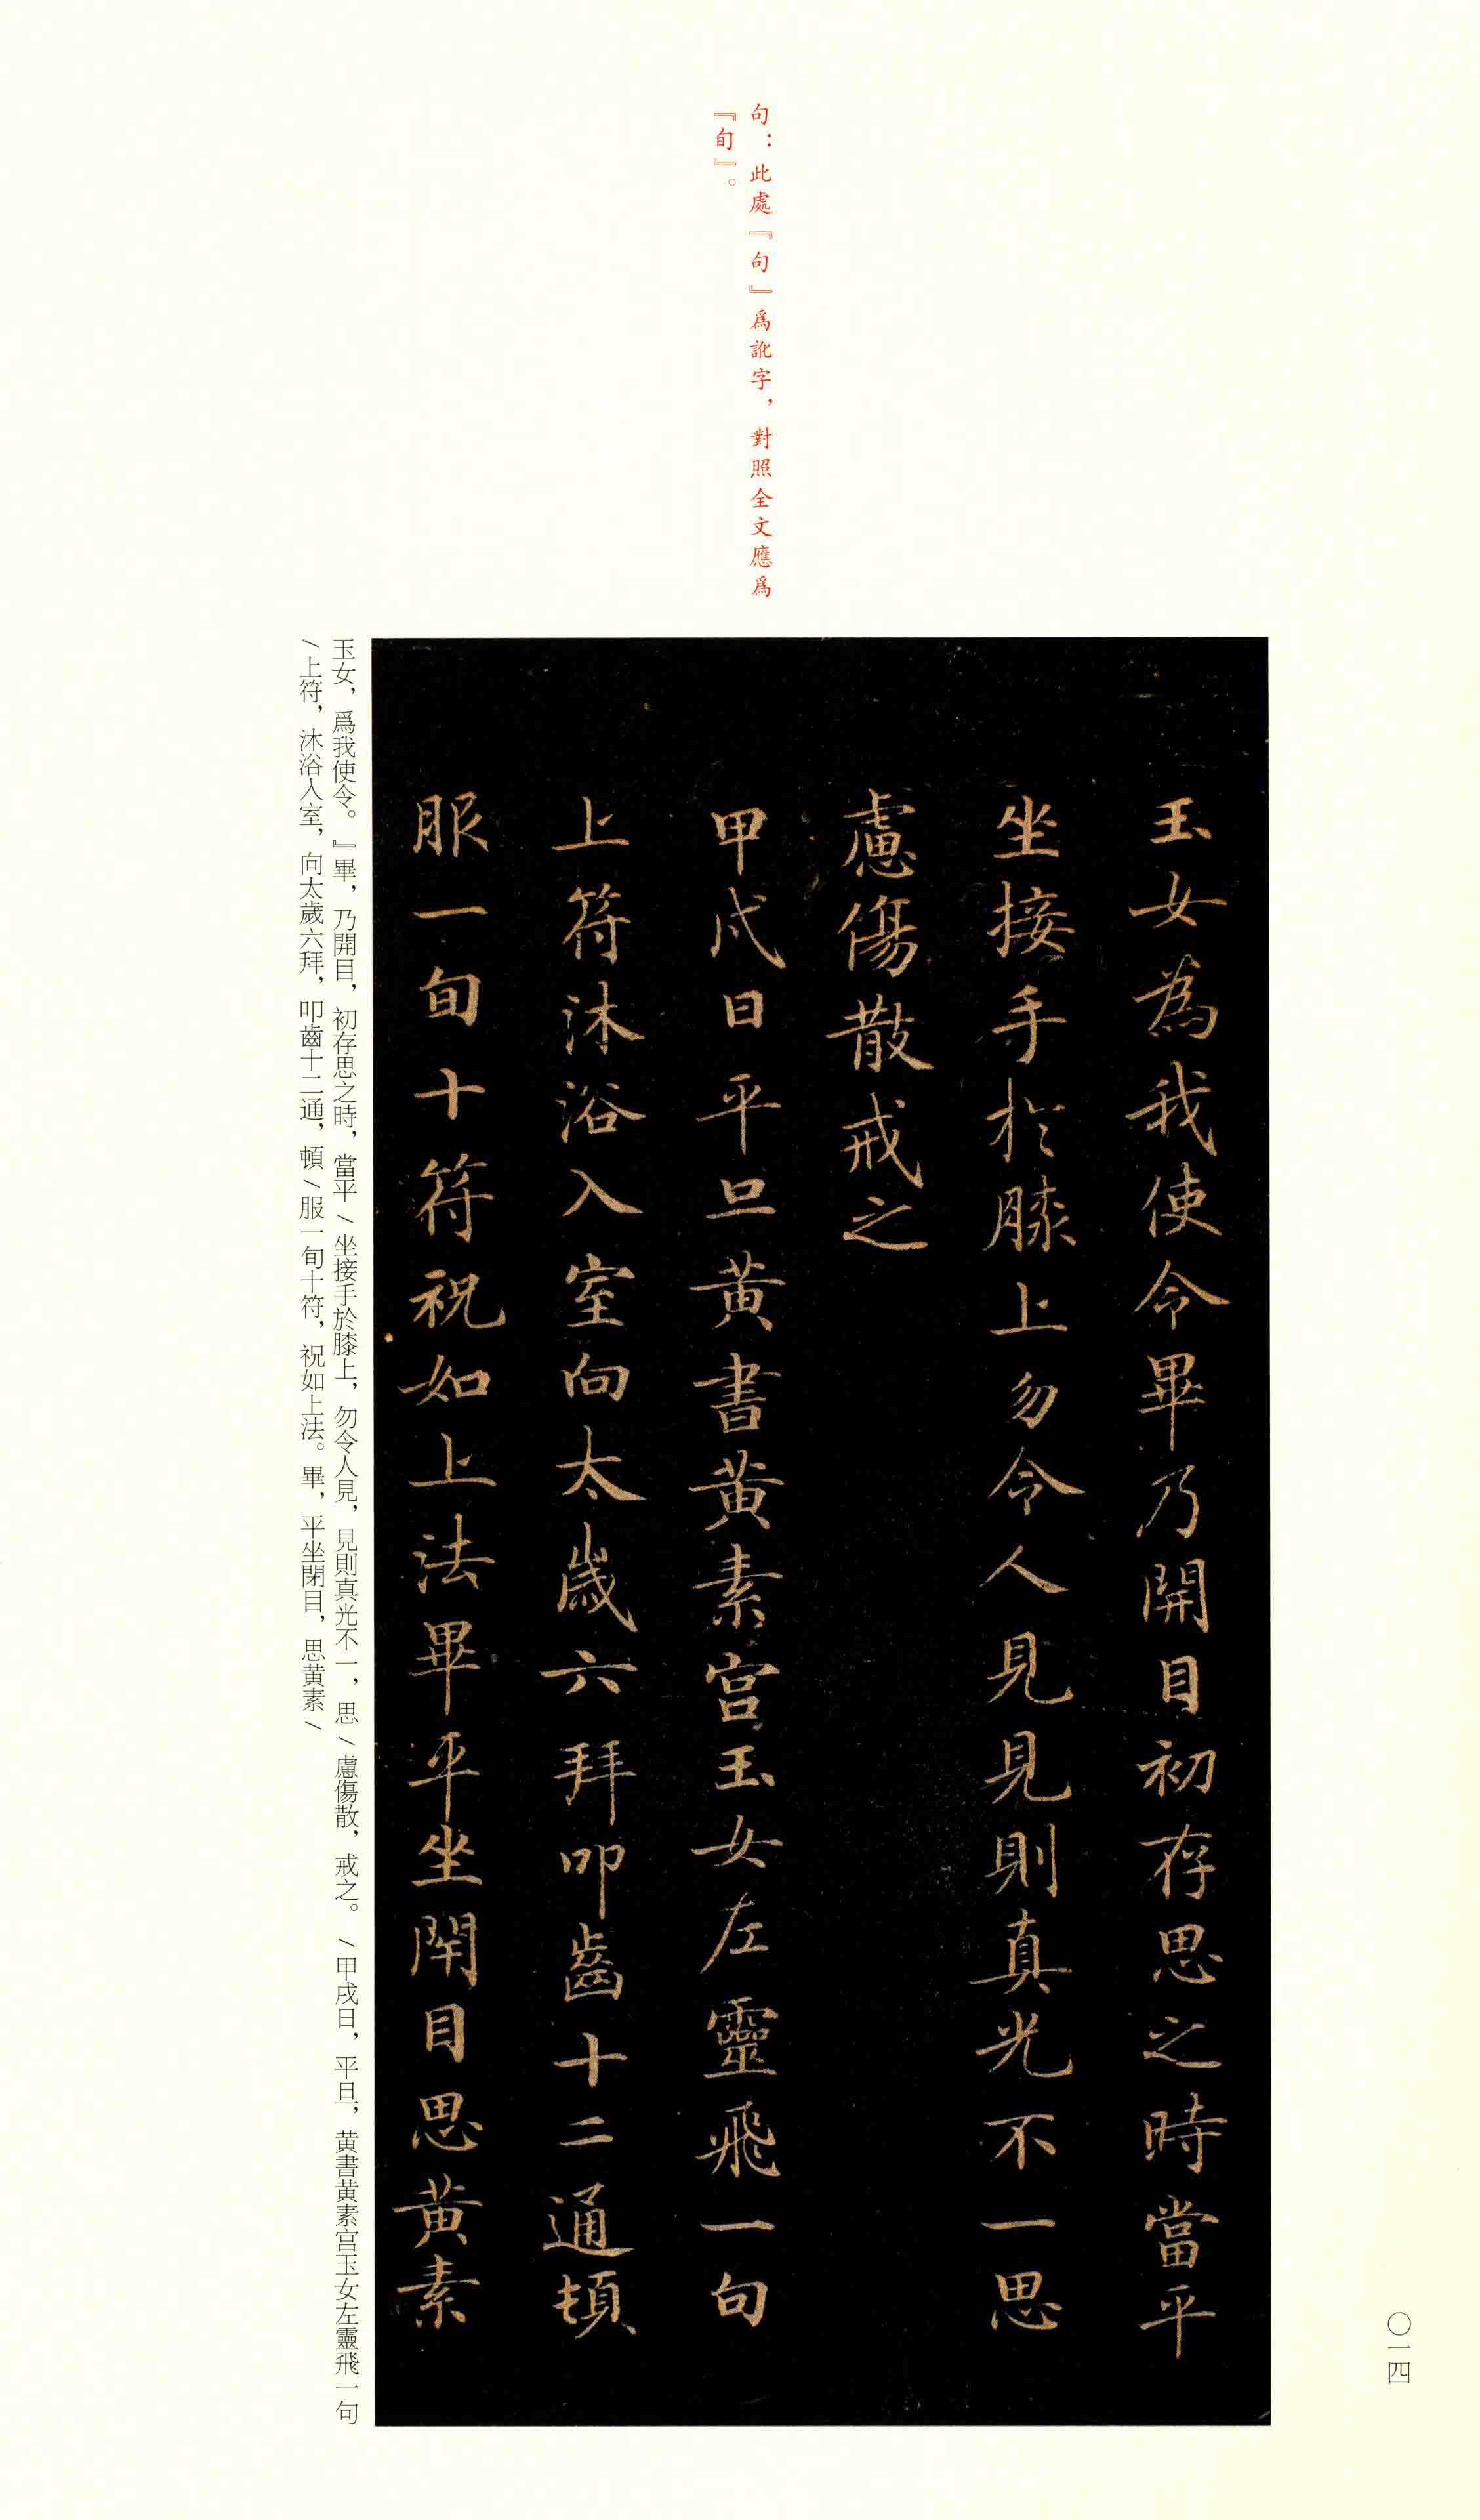 句：此處『句』爲訛字，對照全文應爲
『旬』。
玉女為我使令畢乃開目初存思之時當平
坐接手於膝上勿令人見見則真光不一思
慮傷散戒之
甲戌日平旦黄書黄素宫玉女左靈飛一句
上符沐浴入室向太歲六拜叩齒十二通頓
服一旬十符祝如上法畢平坐閇目思黄素
玉女，爲我使令。』畢，乃開目，初存思之時，當平／坐接手於膝上，勿令人見，見則真光不一，思／慮傷散，戒之。／甲戌日，平旦，黄書黄素宫玉女左靈飛一句
／上符，沐浴入室，向太歲六拜，叩齒十二通，頓／服一旬十符，祝如上法。畢，平坐閉目，思黄素／
〇一四